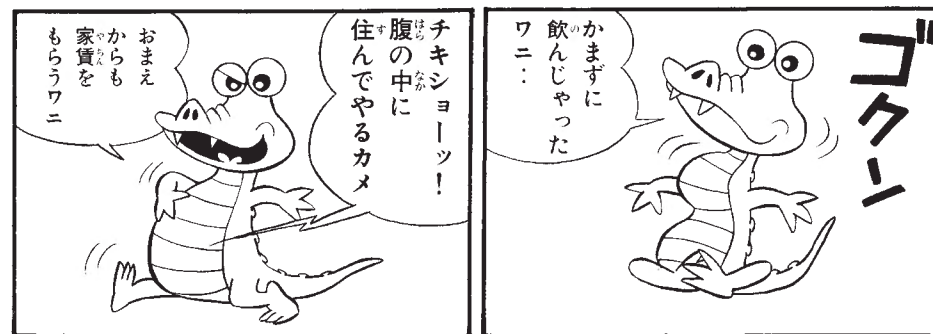 ゴクン
かまずに
飲んじゃった
ワニ‥
チキショーッ!
腹の中に
住んでやるカメ
おまえ
からも
家賃を
もらうワニ